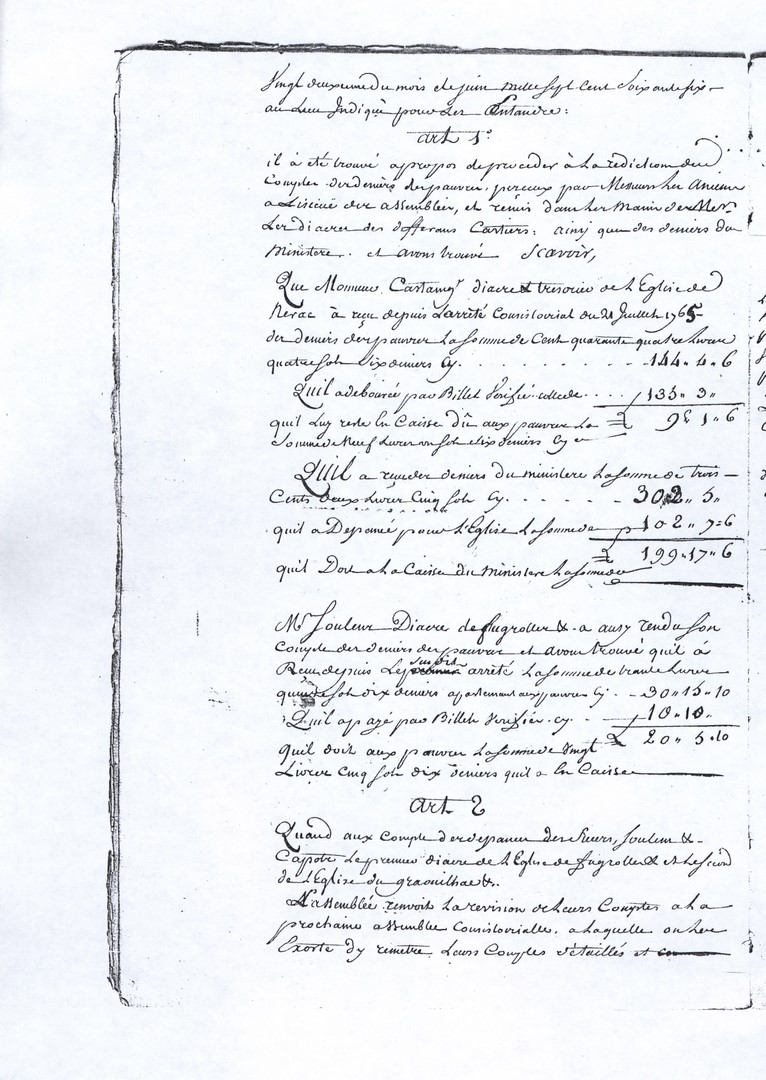 Vingt deuxieme du mois de juin mille sept cent Soixante six –
au Lieu Indiqué pour Les Entandre :
art 1°
il à eté trouvé apropos de proceder à la rediction des
Comptes des deniers des pauvres, perceux par Messieurs les Anciens
a L'issüe des assemblées, et remis dans les mains de Mrs
Les diacres des differans Cartiers ; ainsy que des deniers du
Ministere. et avons trouvé Scavoir,
Que Monsieur Castaing diacre & tresorier de l'Eglise de
Nerac à reçu depuis l'arrêté Consistorial du 21 Juillet 1765
des deniers des pauvres la somme de Cent quarante quatre livres
quatre sols six deniers Cy. . . . . . . . 144 " 4 " 6
Quil a debourcé par Billet Verifié . . . . 135 " 3 "
quil luy reste en Caisse dû aux pauvres La 9 " 1 " 6
Somme de Neuf Livres un sol et six deniers Cy
Quil a reçu des deniers du ministere la somme de trois –
Cents deux Livres Cinq sols Cy. . . . . . 302 " 5 "
quil a Depensé pour L'Eglise la somme de 102 " 7 " 6
199 " 17 " 6
quil Doit a la Caisse du Ministere la somme de
Mr Souleur Diacre de fugrolles & a aussy rendu son
Compte des deniers des pauvres et avons trouvé qu'il à
Reçu depuis Le susdit arrêté la somme de trante Livres
quinze sols dix deniers apartenant aux pauvres Cy. – 30 " 15 " 10
Quil a payé par Billets Verifiés Cy. – 10 " 10 "
quil doit aux pauvres la somme de Vingt 20 " 5 " 10
Livres Cinq sols dix deniers quil a En Caisse
art 2
Quand aux Compte des depances des Sieurs, Souleur &
Capotte Le premier diacre de l'Eglise de fugrolles & et le second
de l'Eglise du graouilhas &.
L'assemblée renvoit la revision de leurs Comptes a la
prochaine assemblée Consistorialle, a laquelle on les
Exorte d'y remetre Leurs Comptes detaillés et en